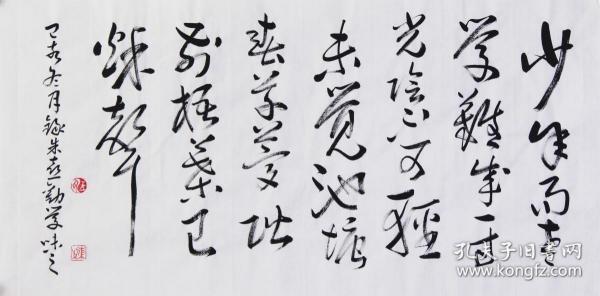 少年易老
学難成一寸
光陰不可輕
未觉池塘
春草夢階
前梧葉已
秋聲
己亥冬月録朱熹勸学
孔夫子旧书网
www.kongfz.com